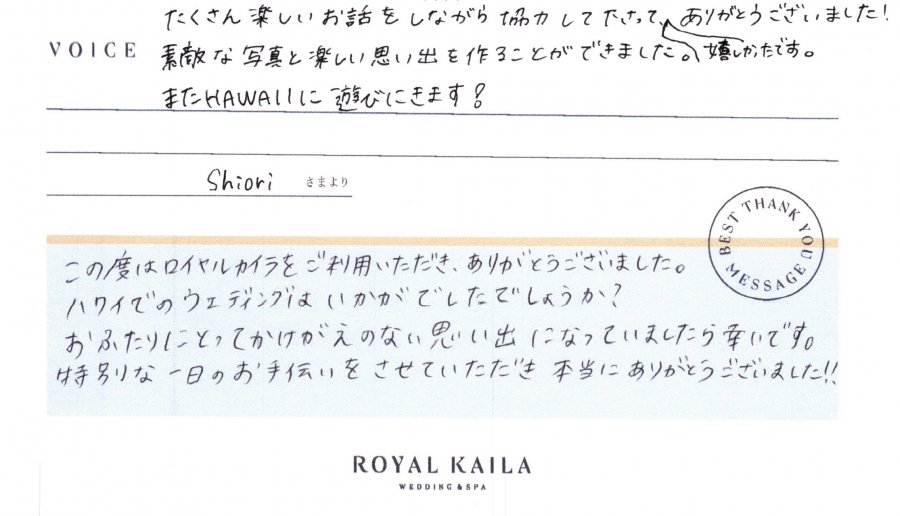 たくさん楽しいお話をしながら協力して下さって、ありがとうございました!
VOICE
素敵な写真と楽しい思い出を作ることができました。嬉しかたです。
またHAWAIIに遊びにきます!
Shiori さまより
BEST THANK YOU MESSAGE
この度はロイヤルカイラをご利用いただき、ありがとうございました。
ハワイでのウェディングはいかがでしたでしょうか?
おふたりにとってかけがえのない思い出になっていましたら幸いです。
特別な一日のお手伝いをさせていただき本当にありがとうございました!!
ROYAL KAILA
WEDDING & SPA